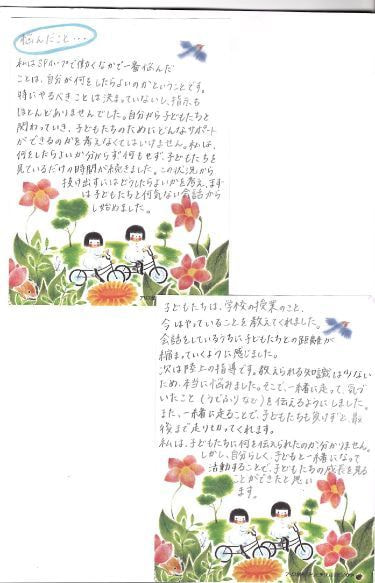 悩んだこと・・・
私はSPホップで働くなかで一番悩んだ
ことは、自分が何をしたらよいのかということです。
特にやるべきことは決まっていないし、指示も
ほとんどありませんでした。自分から子どもたちと
関わっていき、子どもたちのためにどんなサポート
ができるのかを考えなくてはいけません。私は、
何をしたらよいか分からず何もせず、子どもたちを
見ているだけの時間が続きました。この状況から
抜け出すにはどうしたらよいかを考え、まず
は子どもたちと何気ない会話から
し始めました。
子どもたちは、学校の授業のこと、
今はやっていることを教えてくれました。
会話をしているうちに子どもたちとの距離が
縮まっていくように感じました。
次は陸上の指導です。教えられる知識は少ない
ため、本当に悩みました。そこで、一緒に走って、気づ
いたこと(うでふりなど)を伝えるようにしました。
また、一緒に走ることで、子どもたちも負けずと、最
後まで走りきってくれます。
私は、子どもたちに何を伝えられたのか分かりません。
しかし、自分らしく、子どもと一緒になって
活動することで、子どもたちの成長を見る
ことができたと思い
ます。